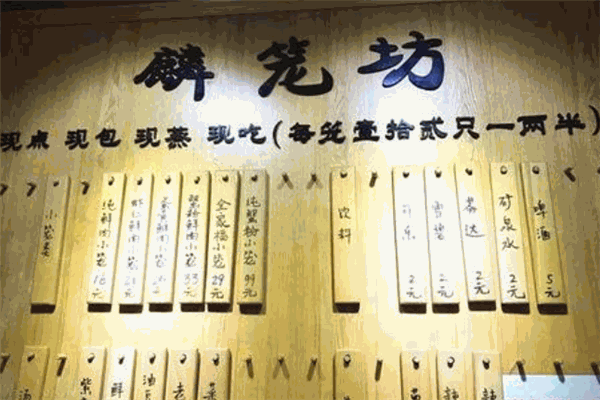 麟笼坊
现点 现包 现蒸 现吃(每笼壹拾贰只一两半)
小笼类
纯鲜肉小笼 16元
虾仁鲜肉小笼
蟹粉鲜肉小笼 33元
全家福小笼 29元
纯蟹粉小笼 99元
饮料
可乐 2元
雪碧 2元
芬达 2元
矿泉水 2元
啤酒 5元
汤
紫
鲜
油
老
辣
辣